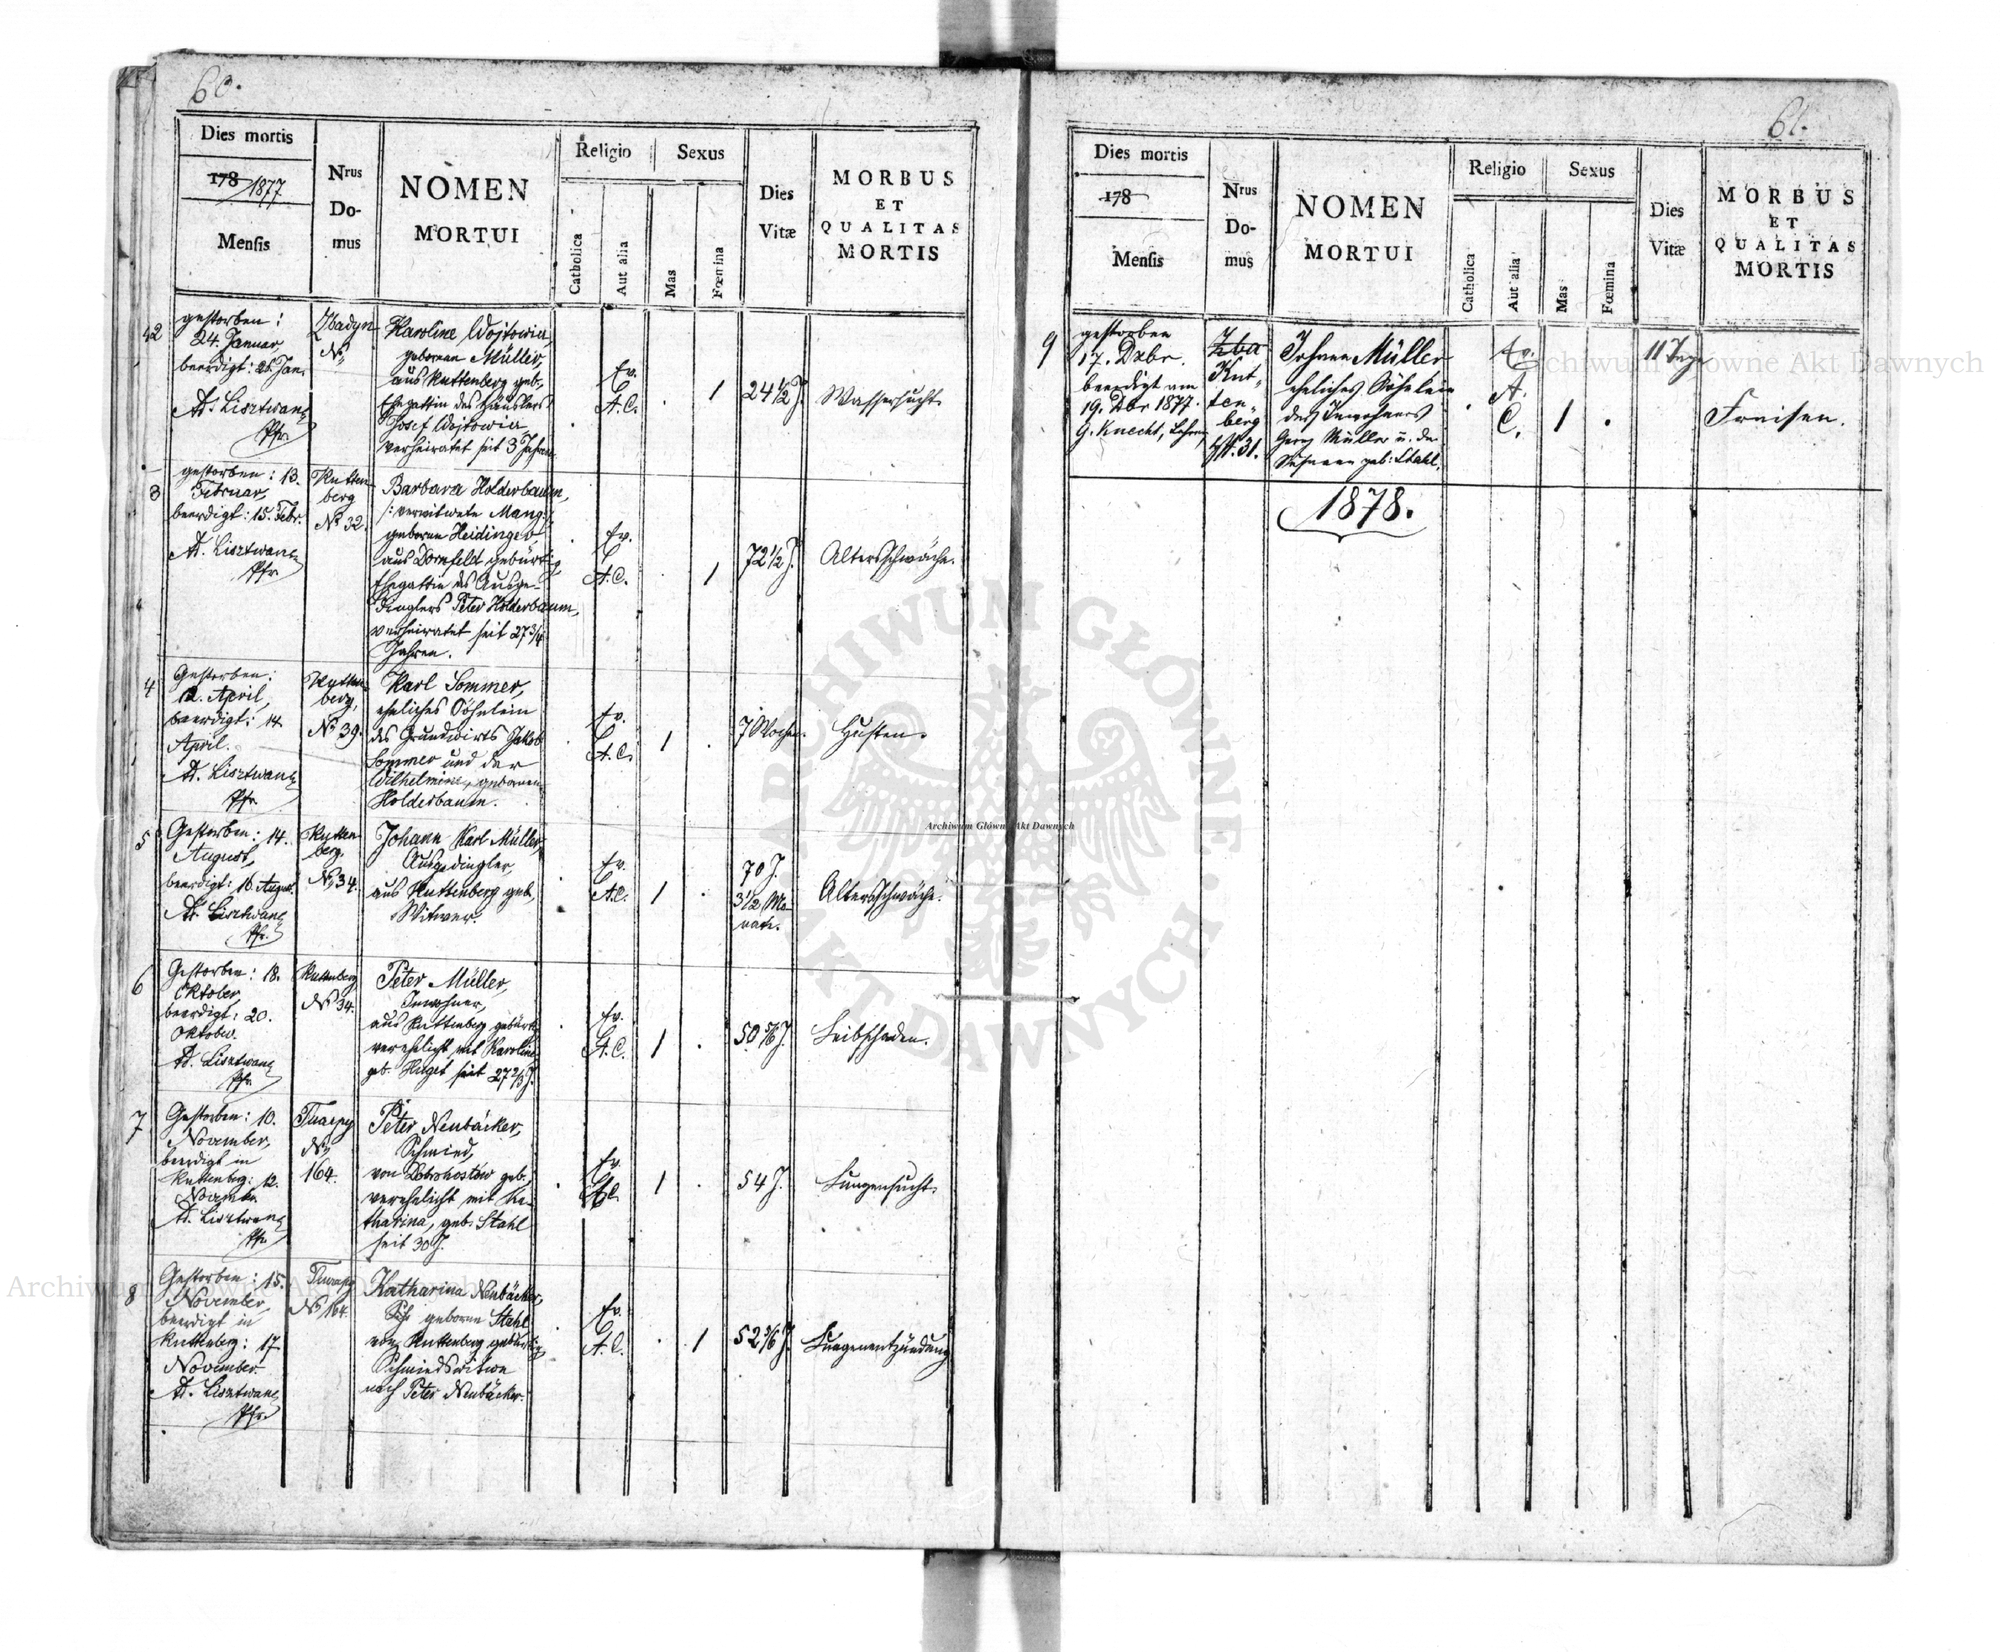 60.
Dies mortis
178 1877
Mensis
Nrus
Do-
mus
NOMEN
MORTUI
Religio
Catholica
Aut alia
Sexus
Mas
Fœmina
Dies
Vitæ
MORBUS
ET
QUALITAS
MORTIS
42
gestorben:
24. Januar
beerdigt: 26. Jan.
Ad. Lisztwan
Pfr.
Zbadyn
No
Karoline Wojtowin,
geborene Müller,
aus Kuttenberg geb.,
Ehegattin des Häuslers
Josef Wojtowin,
verheiratet seit 3 Jahren
Ev.
A.C.
1
24 1/2 J.
Wassersucht.
3
gestorben: 13.
Februar,
beerdigt: 15. Febr.
Ad. Lisztwan
Pfr.
Kutten-
berg
No 32.
Barbara Holderbaum,
/: verwitwete Mang:/
geborene Heidinger
aus Dornfeld gebürtig
Ehegattin des Ausge-
dinglers Peter Holderbaum,
verheiratet seit 27 3/4
Jahren.
Ev.
A.C.
1
72 1/2 J.
Altersschwäche.
4
Gestorben:
12. April,
beerdigt: 14.
April.
Ad. Lisztwan
Pfr.
Kutten-
berg,
No 39.
Karl Sommer,
eheliches Söhnlein
des Grundwirts Jakob
Sommer und der
Wilhelmine, geborenen
Holderbaum.
Ev.
A.C.
1
7 Wochen.
Husten.
5
Gestorben: 14.
August,
beerdigt: 16. August.
Ad. Lisztwan
Pfr.
Kutten-
berg.
No 34.
Johann Karl Müller,
Ausgedingler,
aus Kuttenberg geb.,
Witwer.
Ev.
A.C.
1
70 J.
3 1/2 Mo-
nate.
Altersschwäche.
6
Gestorben: 18.
Oktober
beerdigt: 20.
Oktober.
Ad. Lisztwan
Pfr.
Kuttenberg
No 34.
Peter Müller,
Inwohner,
aus Kuttenberg gebürtig
verehelicht mit Karoline
geb. Huget seit 27 2/3 J.
Ev.
A.C.
1
50 5/6 J.
Leibschaden.
7
Gestorben: 10.
November,
beerdigt in
Kuttenberg: 12.
November.
Ad. Lisztwan
Pfr.
No
164.
Peter Neubäcker,
Schmied,
von Dobrohostów geb.,
verehelicht mit Ka-
tharina, geb. Stahl
seit 30 J.
Ev.
A.C.
1
54 J.
Lungensucht.
8
Gestorben: 15.
November,
beerdigt in
Kuttenberg: 17.
November.
Ad. Lisztwan
Pfr.
No 164.
Katharina Neubäcker,
geborene Stahl
von Kuttenberg gebürtig,
Schmiedswitwe
nach Peter Neubäcker.
Ev.
A.C.
1
52 5/6 J.
Lungenentzündung
61.
Dies mortis
178
Mensis
Nrus
Do-
mus
NOMEN
MORTUI
Religio
Catholica
Aut alia
Sexus
Mas
Fœmina
Dies
Vitæ
MORBUS
ET
QUALITAS
MORTIS
9
gestorben
17. Dzbr.
beerdigt am
19. Dbr 1877.
G. Knecht, Lehrer
Zba
Kut-
ten-
berg
No. 31.
Johann Müller
eheliches Söhnlein
des Inwohners
Georg Müller u. der
Susanna geb: Stahl.
Ev.
A.
C.
1
11 Tage
Fraisen.
1878.
ARCHIWUM GŁÓWNE AKT DAWNYCH
Archiwum Główne Akt Dawnych
Archiwum Główne Akt Dawnych
Archiwum Główne Akt Dawnych